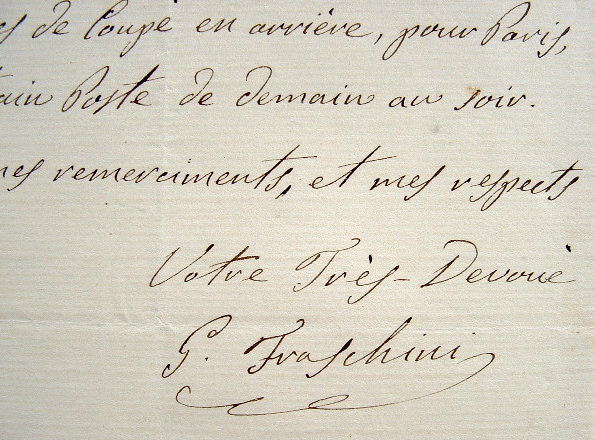 es de Coupè en arrière, pour Paris,
ain Poste de demain au soir.
mes remerciments, et mes respects
Votre Très-Devouè
G. Fraschini